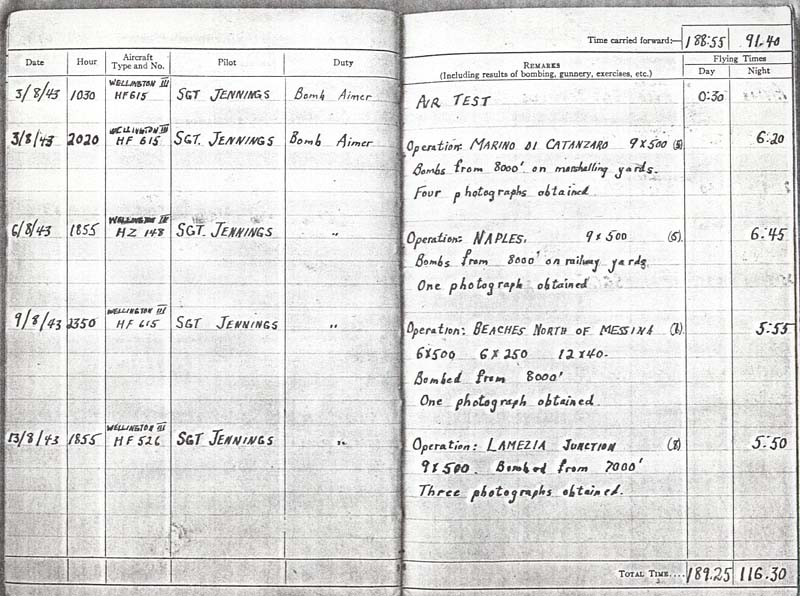 Time carried forward:— 188:55 91.40
Date Hour Aircraft Type and No. Pilot Duty REMARKS (Including results of bombing, gunnery, exercises, etc.) Flying Times Day Night
3/8/43 1030 WELLINGTON III HF615 SGT JENNINGS Bomb Aimer AIR TEST 0:30
3/8/43 2020 WELLINGTON III HF 615 SGT. JENNINGS Bomb Aimer Operation: MARINO DI CATANZARO 9x500 6:20
Bombs from 8000' on marshalling yards.
Four photographs obtained.
6/8/43 1855 WELLINGTON III HZ 148 SGT. JENNINGS " Operation: NAPLES. 9x500 (5) 6:45
Bombs from 8000' on railway yards
One photograph obtained
9/8/43 2350 WELLINGTON III HF 615 SGT JENNINGS " Operation: BEACHES NORTH OF MESSINA 5:55
6x500 6x250 12x40.
Bombed from 8000'
One photograph obtained.
13/8/43 1855 WELLINGTON III HF 526 SGT JENNINGS " Operation: LAMEZIA JUNCTION 5:50
9x500. Bombed from 7000'
Three photographs obtained.
TOTAL TIME.... 189.25 116.30